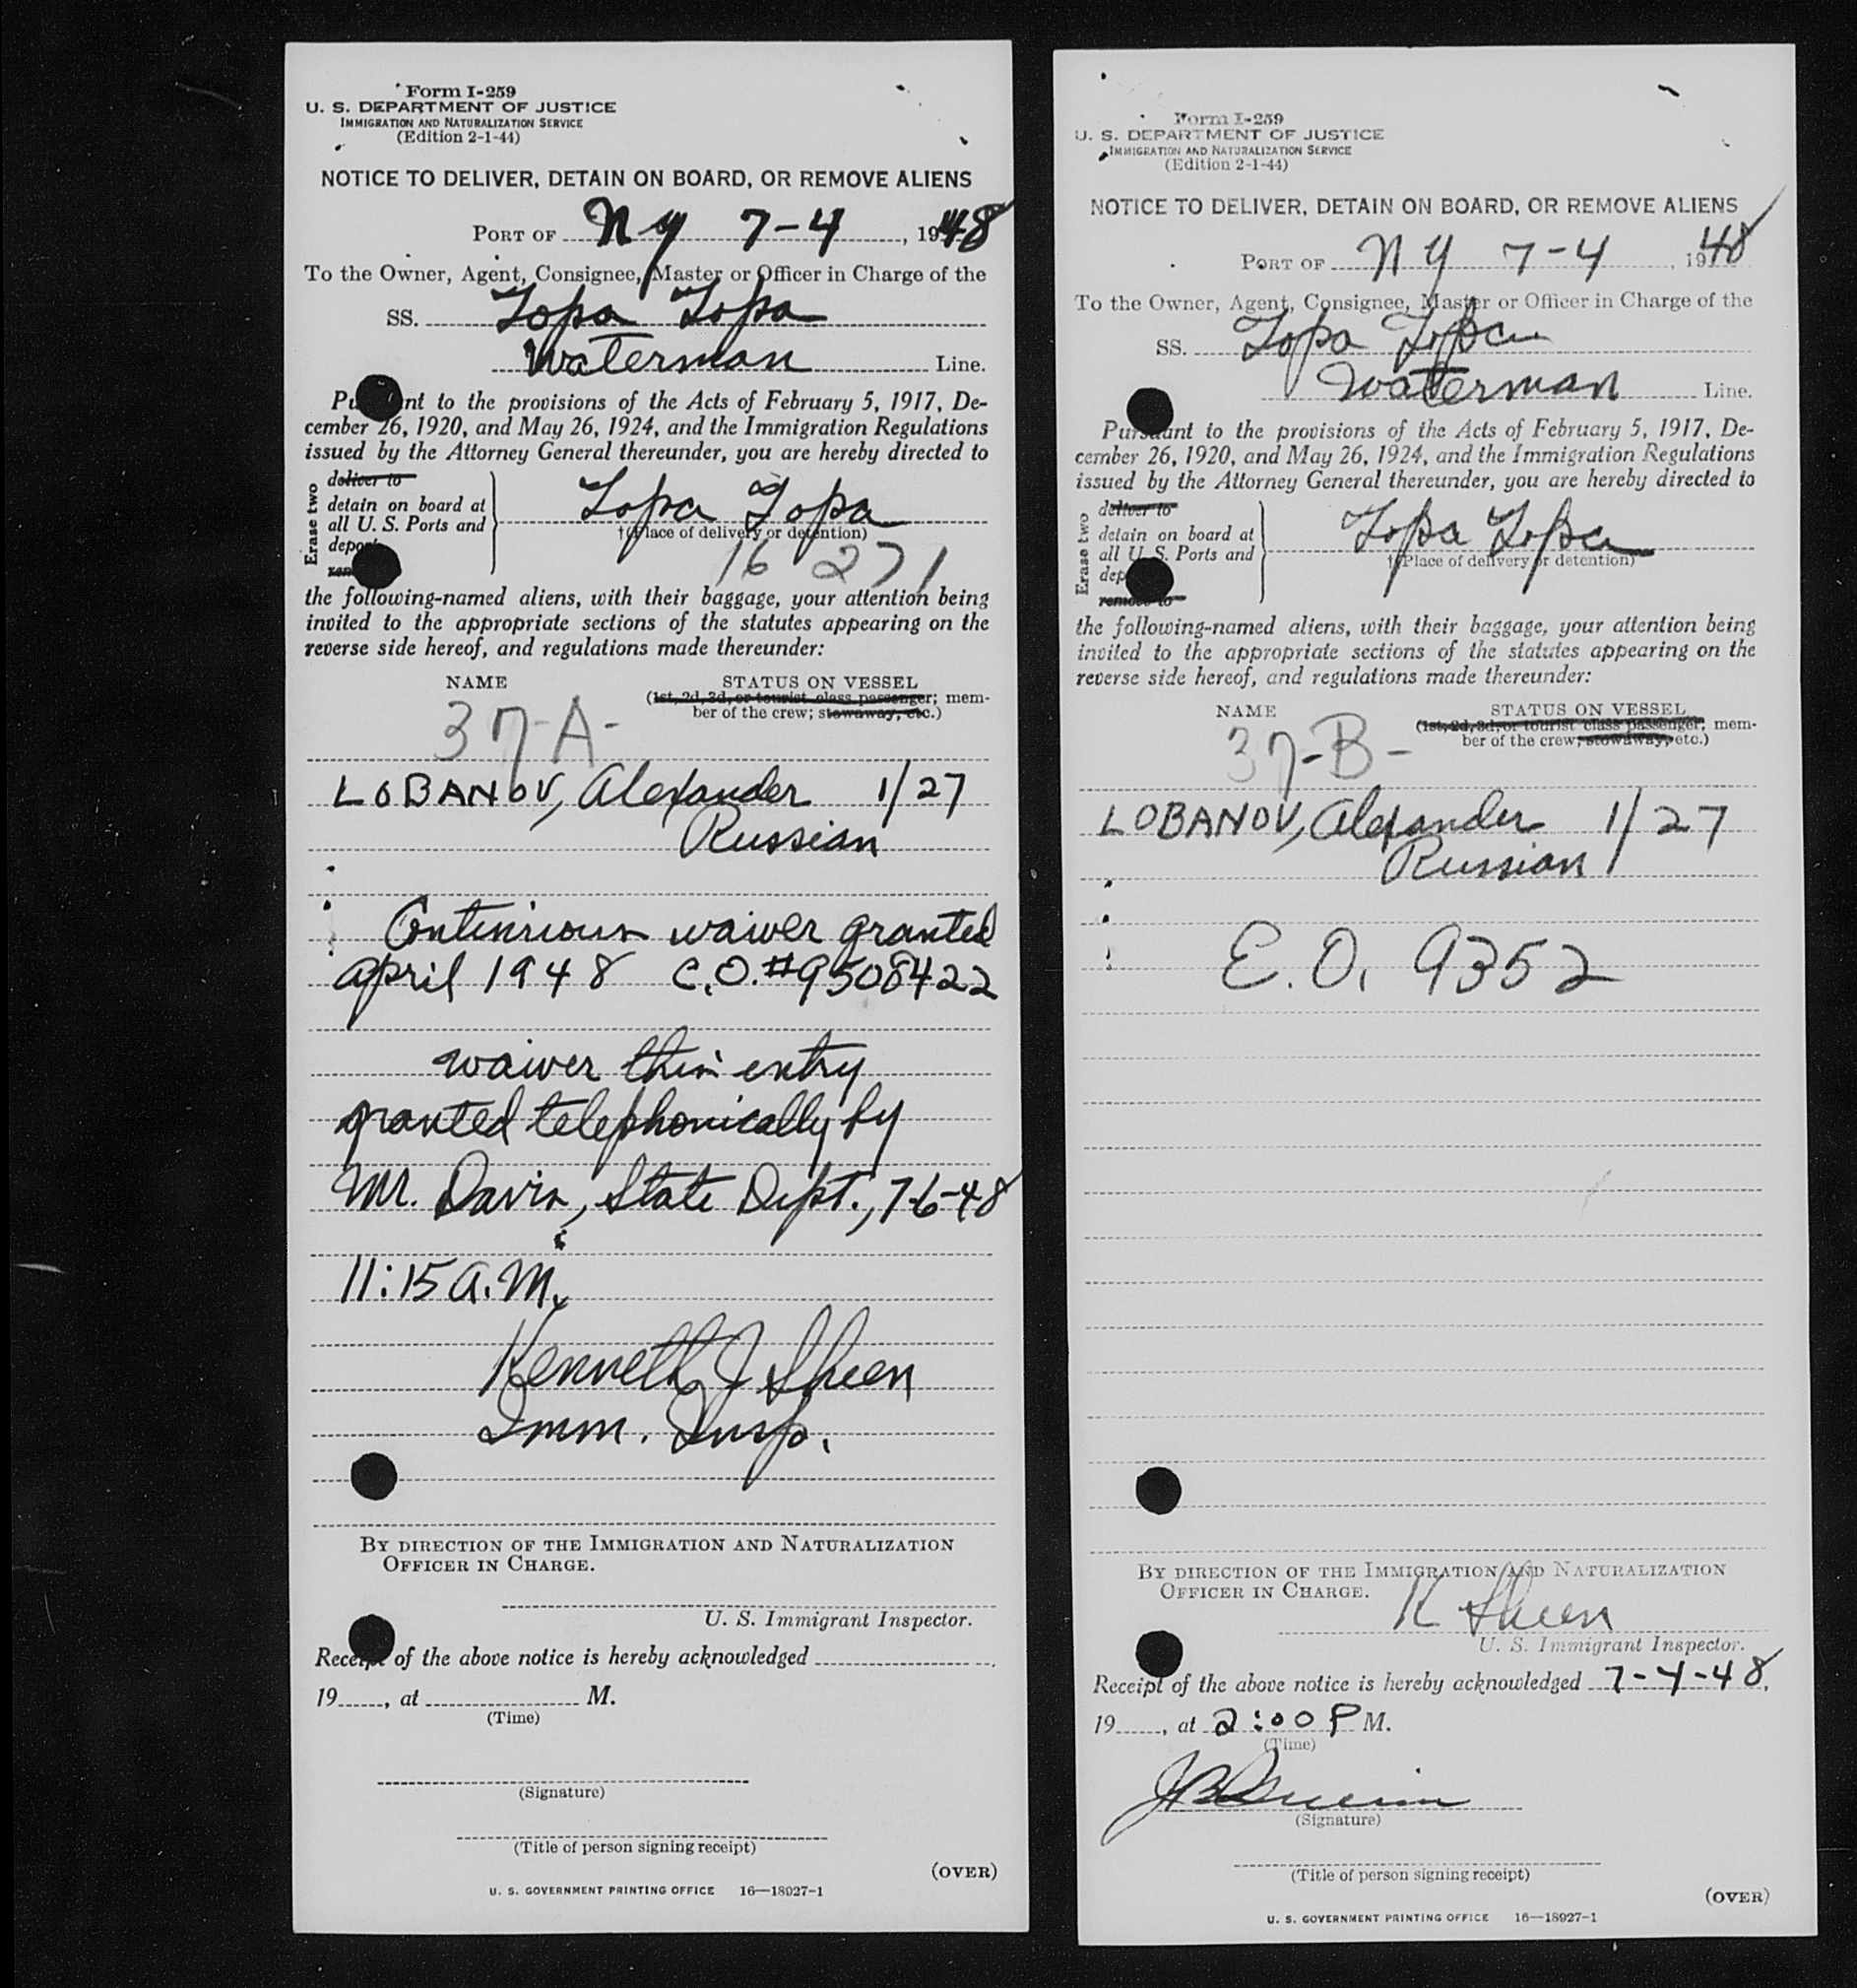 Form I-259
U. S. DEPARTMENT OF JUSTICE
IMMIGRATION AND NATURALIZATION SERVICE
(Edition 2-1-44)
NOTICE TO DELIVER, DETAIN ON BOARD, OR REMOVE ALIENS
PORT OF N Y 7-4, 1948
To the Owner, Agent, Consignee, Master or Officer in Charge of the
SS. Topa Topa
Waterman Line.
Pursuant to the provisions of the Acts of February 5, 1917, De-
cember 26, 1920, and May 26, 1924, and the Immigration Regulations
issued by the Attorney General thereunder, you are hereby directed to
Erase two
deliver to
detain on board at
all U. S. Ports and
deport
Topa Topa
†(Place of delivery or detention)
16 271
the following-named aliens, with their baggage, your attention being
invited to the appropriate sections of the statutes appearing on the
reverse side hereof, and regulations made thereunder:
NAME STATUS ON VESSEL
(1st, 2d, 3d, or tourist class passenger; mem-
ber of the crew; stowaway, etc.)
37-A-
LOBANOV, Alexander 1/27
Russian
Continious waiver granted
April 1948 C.O.#9508422
waiver this entry
granted telephonically by
Mr. Davis, State Dept., 7-6-48
11:15 A.M.
Kenneth J Sheen
Imm. Insp.
BY DIRECTION OF THE IMMIGRATION AND NATURALIZATION
OFFICER IN CHARGE.
U. S. Immigrant Inspector.
Receipt of the above notice is hereby acknowledged
19, at M.
(Time)
(Signature)
(Title of person signing receipt)
(OVER)
U. S. GOVERNMENT PRINTING OFFICE 16—18927-1
Form I-259
U. S. DEPARTMENT OF JUSTICE
IMMIGRATION AND NATURALIZATION SERVICE
(Edition 2-1-44)
NOTICE TO DELIVER, DETAIN ON BOARD, OR REMOVE ALIENS
PORT OF N Y 7-4, 1948
To the Owner, Agent, Consignee, Master or Officer in Charge of the
SS. Topa Topa
Waterman Line.
Pursuant to the provisions of the Acts of February 5, 1917, De-
cember 26, 1920, and May 26, 1924, and the Immigration Regulations
issued by the Attorney General thereunder, you are hereby directed to
Erase two
deliver to
detain on board at
all U. S. Ports and
remove to
Topa Topa
†(Place of delivery or detention)
the following-named aliens, with their baggage, your attention being
invited to the appropriate sections of the statutes appearing on the
reverse side hereof, and regulations made thereunder:
NAME STATUS ON VESSEL
(1st, 2d, 3d, or tourist class passenger; mem-
ber of the crew; stowaway, etc.)
37-B-
LOBANOV, Alexander 1/27
Russian
E.O. 9352
BY DIRECTION OF THE IMMIGRATION AND NATURALIZATION
OFFICER IN CHARGE.
K Sheen
U. S. Immigrant Inspector.
Receipt of the above notice is hereby acknowledged 7-4-48,
19, at 2:00 P M.
(Time)
(Signature)
(Title of person signing receipt)
(OVER)
U. S. GOVERNMENT PRINTING OFFICE 16—18927-1